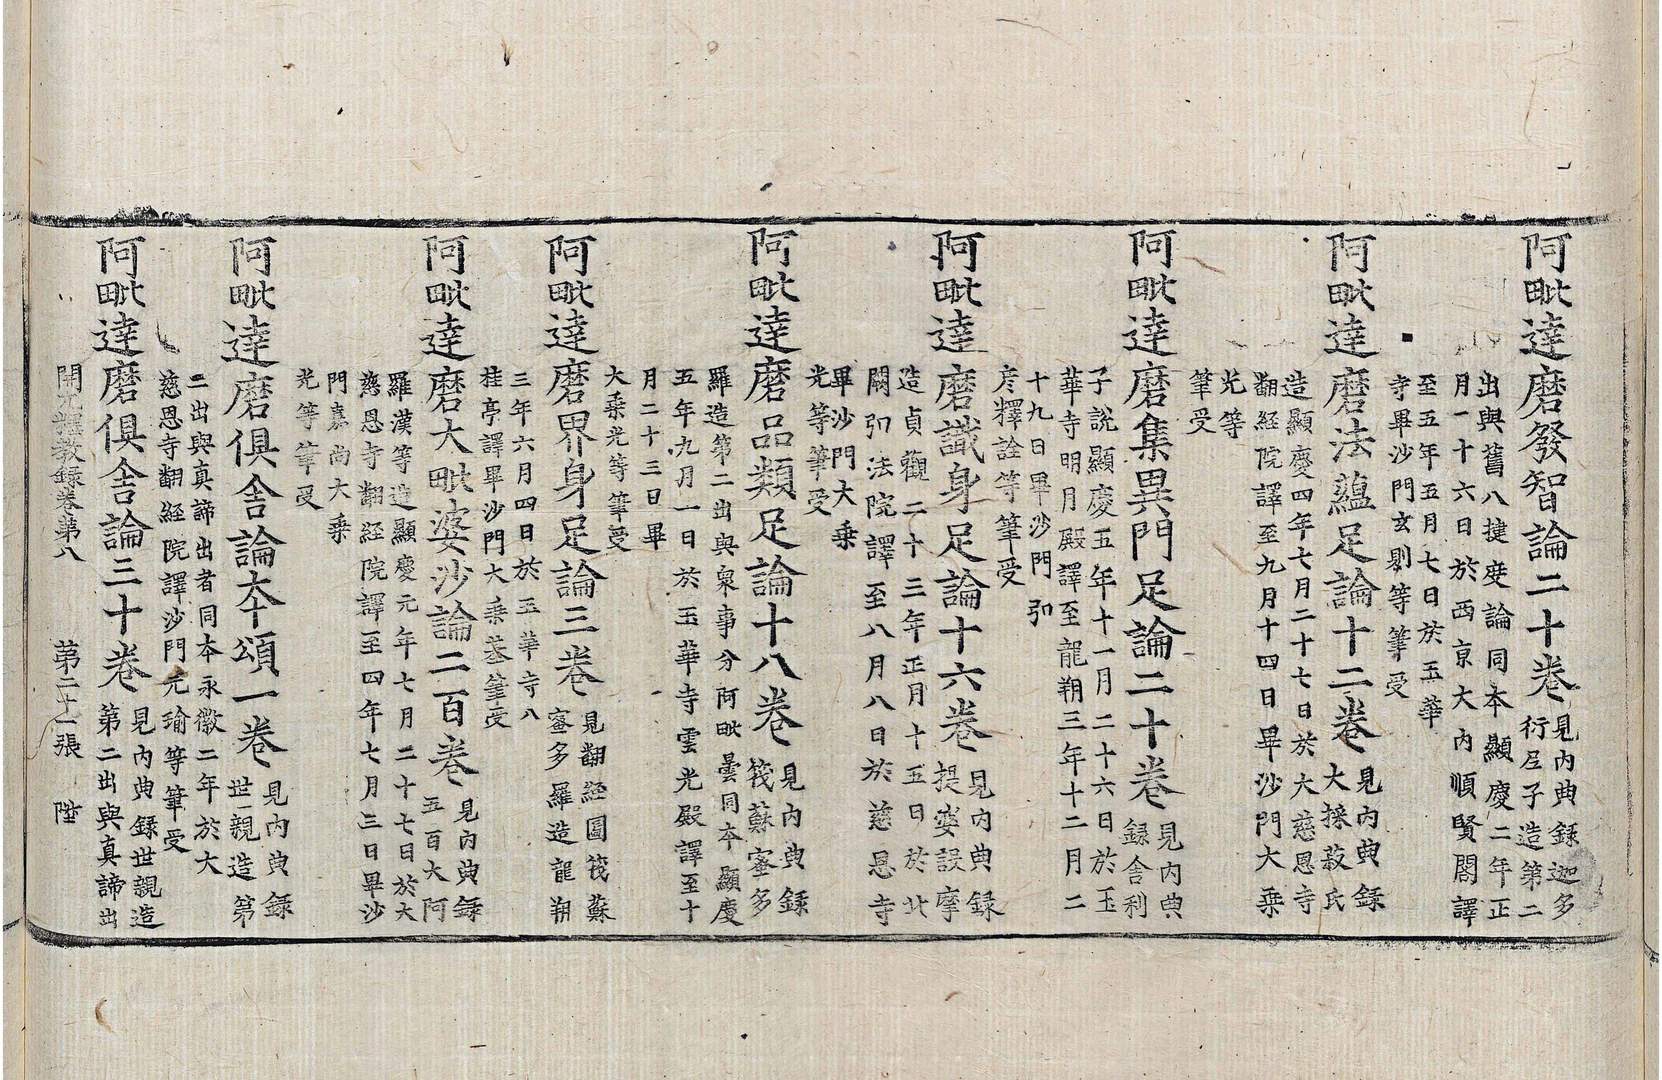 阿毗達磨發智論二十卷
見內典錄迦多
衍尼子造第二
出與舊八揵度論同本顯慶二年正
月一十六日於西京大內順賢閣譯
至五年五月七日於玉華
寺畢沙門玄則等筆受
阿毗達磨法蘊足論十二卷
見內典錄
大採菽氏
造顯慶四年七月二十七日於大慈恩寺
翻經院譯至九月十四日畢沙門大乗
光等
筆受
阿毗達磨集異門足論二十卷
見內典
錄舍利
子說顯慶五年十一月二十六日於玉
華寺明月殿譯至龍朔三年十二月二
十九日畢沙門弘
彥釋詮等筆受
阿毗達磨識身足論十六卷
見內典錄
提婆設摩
造貞觀二十三年正月十五日於北
闕弘法院譯至八月八日於慈恩寺
畢沙門大乗
光等筆受
阿毗達磨品類足論十八卷
見內典錄
筏蘇蜜多
羅造第二出與衆事分阿毗曇同本顯慶
五年九月一日於玉華寺雲光殿譯至十
月二十三日畢
大乗光等筆受
阿毗達磨界身足論三卷
見翻經圖筏蘇
蜜多羅造龍朔
三年六月四日於玉華寺八
桂亭譯畢沙門大乗基筆受
阿毗達磨大毗婆沙論二百卷
見內典錄
五百大阿
羅漢等造顯慶元年七月二十七日於大
慈恩寺翻經院譯至四年七月三日畢沙
門嘉尚大乗
光等筆受
阿毗達磨俱舍論本頌一卷
見內典錄
世親造第
二出與真諦出者同本永徽二年於大
慈恩寺翻經院譯沙門元瑜等筆受
阿毗達磨俱舍論三十卷
見內典錄世親造
第二出與真諦出
開元釋教錄卷第八 第二十一張 陞